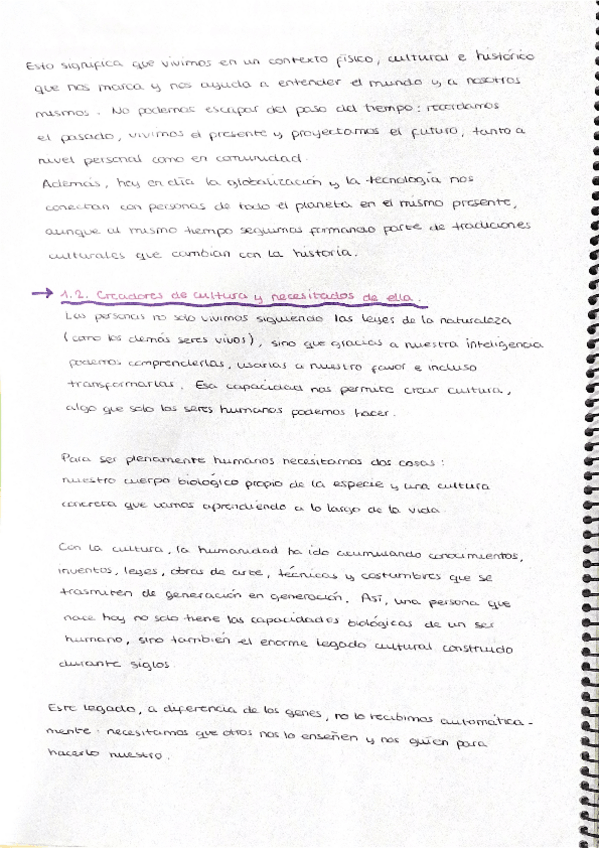 Esto significa que vivimos en un contexto físico, cultural e histórico
que nos marca y nos ayuda a entender el mundo y, a nosotros
mismos. No podemos escapar del paso del tiempo: recordamos
el pasado, vivimos el presente y proyectamos el futuro, tanto a
nivel personal como en comunidad.
Además, hoy en día la globalización y la tecnología nos
conectan con personas de todo el planeta en el mismo presente,
aunque al mismo tiempo seguimos formando parte de tradiciones
culturales que cambian con la historia.
→ 1.2. Creadores de cultura y necesitados de ella.
Las personas no solo vivimos siguiendo las leyes de la naturaleza
(como los demás seres vivos), sino que gracias a nuestra inteligencia
podemos comprenderlas, usarlas a nuestro favor e incluso
transformarlas. Esa capacidad nos permite crear cultura,
algo que solo los seres humanos podemos hacer.
Para ser plenamente humanos necesitamos dos cosas:
nuestro cuerpo biológico propio de la especie y una cultura
concreta que vamos aprendiendo a lo largo de la vida.
Con la cultura, la humanidad ha ido acumulando conocimientos,
inventos, leyes, obras de arte, técnicas y costumbres que se
trasmiten de generación en generación. Así, una persona que
nace hoy no solo tiene las capacidades biológicas de un ser
humano, sino también el enorme legado cultural construido
durante siglos.
Este legado, a diferencia de los genes, no lo recibimos automática-
mente: necesitamos que otros nos lo enseñen y nos guíen para
hacerlo nuestro.